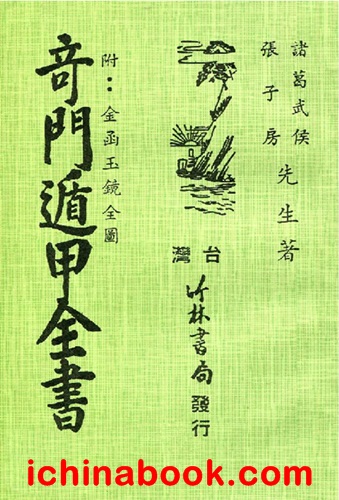 諸葛武侯
張子房
先生著
台灣
竹林書局
發行
附：金函玉鏡全圖
奇門遁甲全書
ichinabook.com